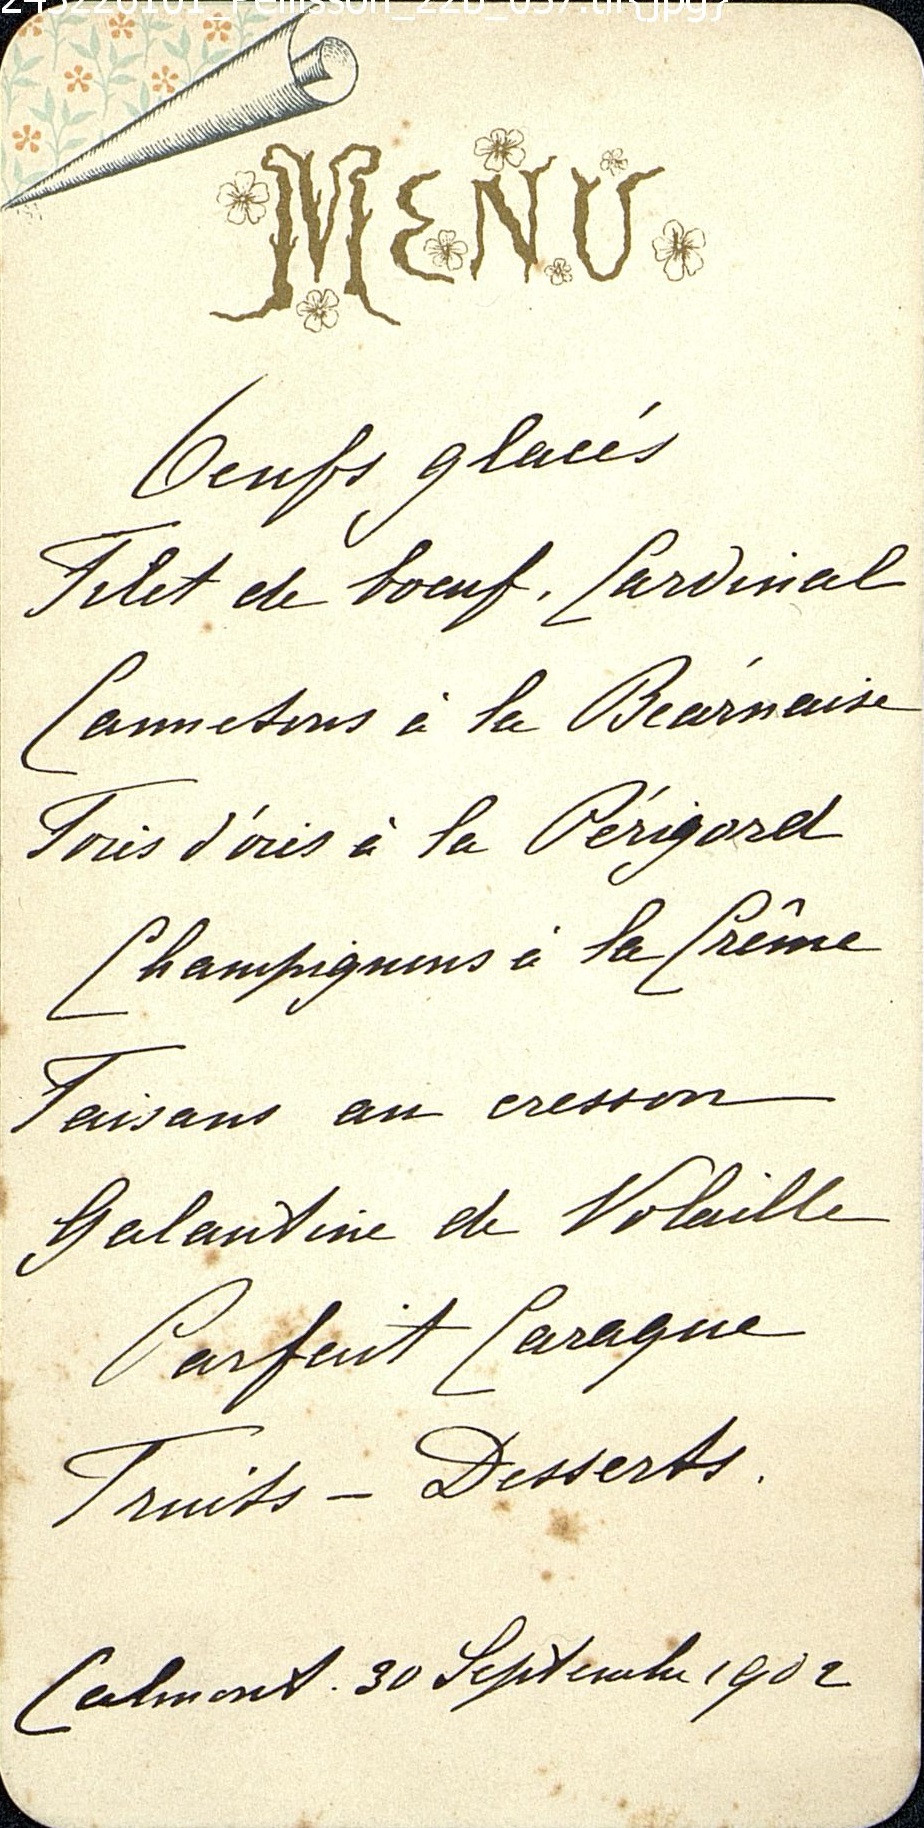 MENU
Oeufs glacés
Filet de boeuf. Cardinal
Cannetons à la Bearnaise
Foies d'oies à la Périgord
Champignons à la Crême
Faisans au cresson
Galantine de Volaille
Parfait Caraque
Fruits - Desserts.
Calmont. 30 Septembre 1902